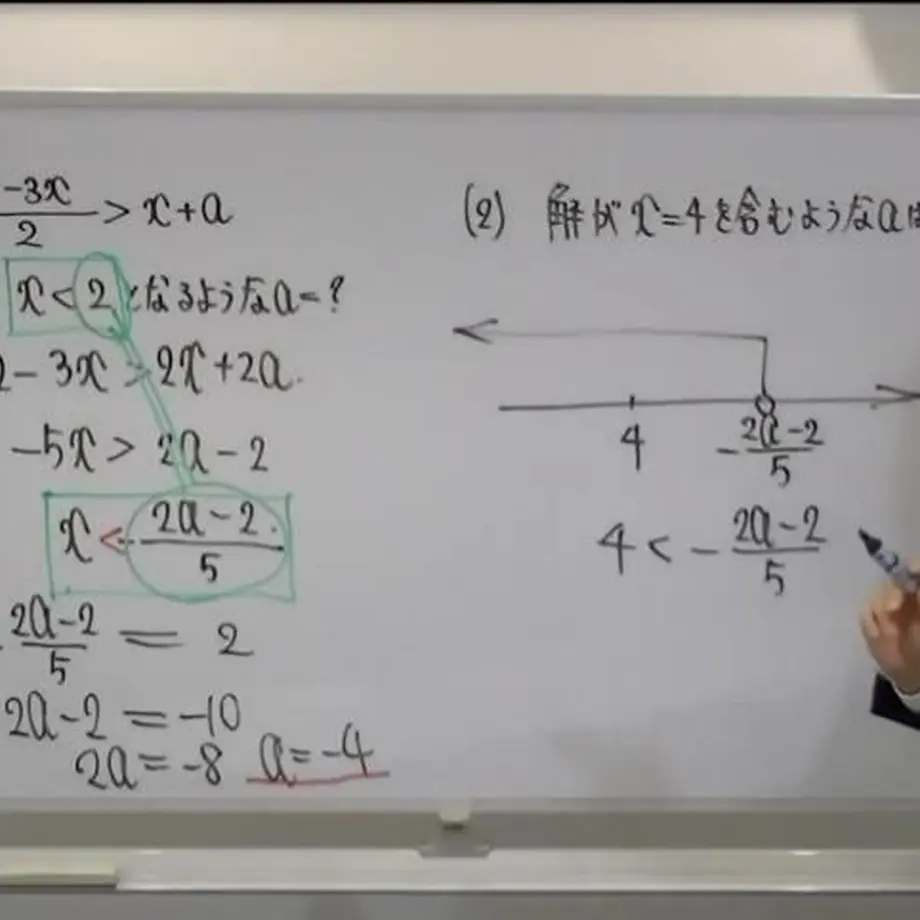 -3x/2 > x+a
x<2となるようなa=?
2-3x>2x+2a.
-5x > 2a-2
x < -2a-2/5
-2a-2/5 = 2
2a-2 = -10
2a = -8 a = -4
(2) 解がx=4を含むようなaは
4 -2a-2/5
4 < -2a-2/5